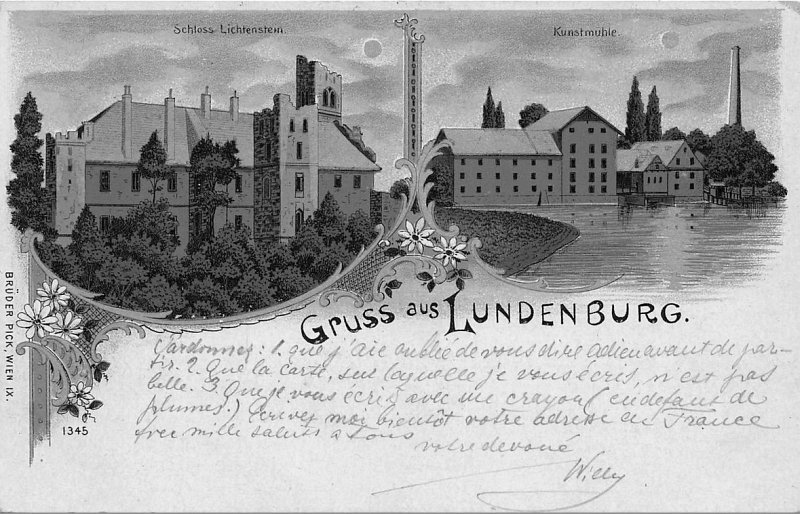 Schloss Lichtenstein.
Kunstmühle.
Gruss aus Lundenburg.
Pardonnez: 1. que j'aie oublié de vous dire adieu avant de par-
tir. 2. Que la carte, sur laquelle je vous écris, n'est pas
belle. 3. Que je vous écris avec un crayon (en défaut de
plumes.) Ecrivez moi bientôt votre adresse en France
Avec mille saluts à tous
votre devoué
Willy
BRÜDER PICK, WIEN IX.
1345